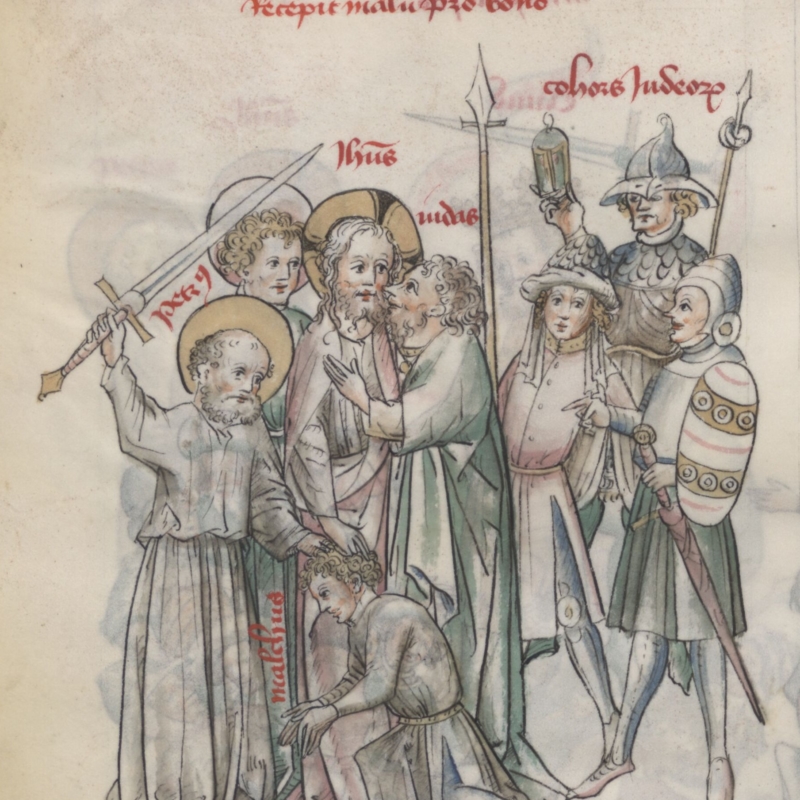 Recepit malū pro bono
cohors Judeorꝝ
Jhūs
iudas
petrꝰ
malchus